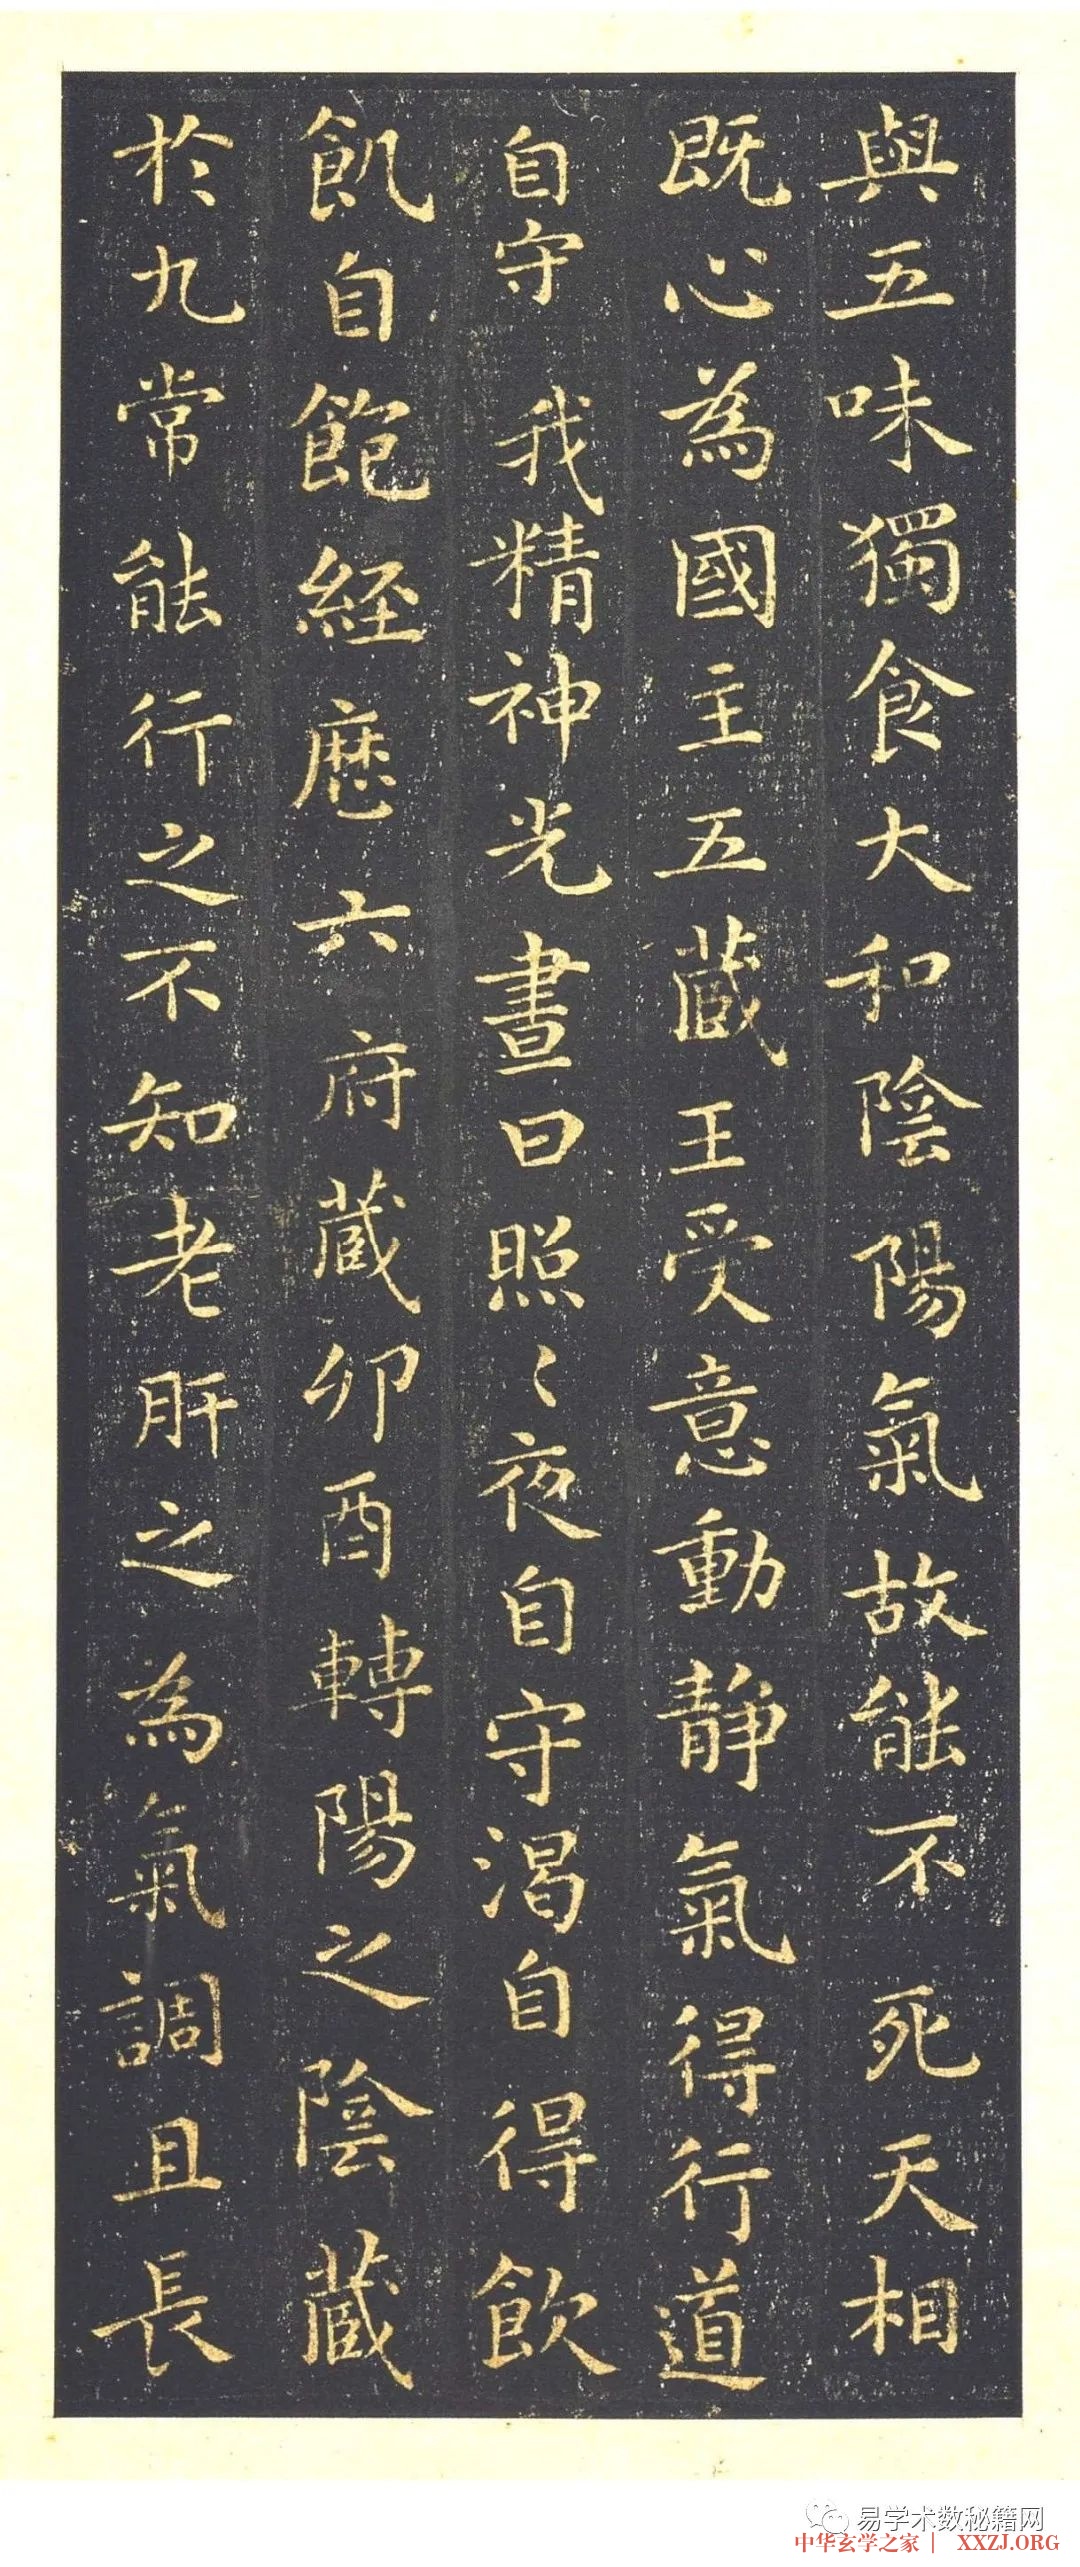 與五味獨食大和陰陽氣故能不死天相
既心為國主五藏王受意動静氣得行道
自守我精神光晝日照〻夜自守渴自得飲
飢自飽經歷六府藏卯酉轉陽之陰藏
於九常能行之不知老肝之為氣調且長
易学术数秘籍网
中华玄学之家 | XXZJ.ORG